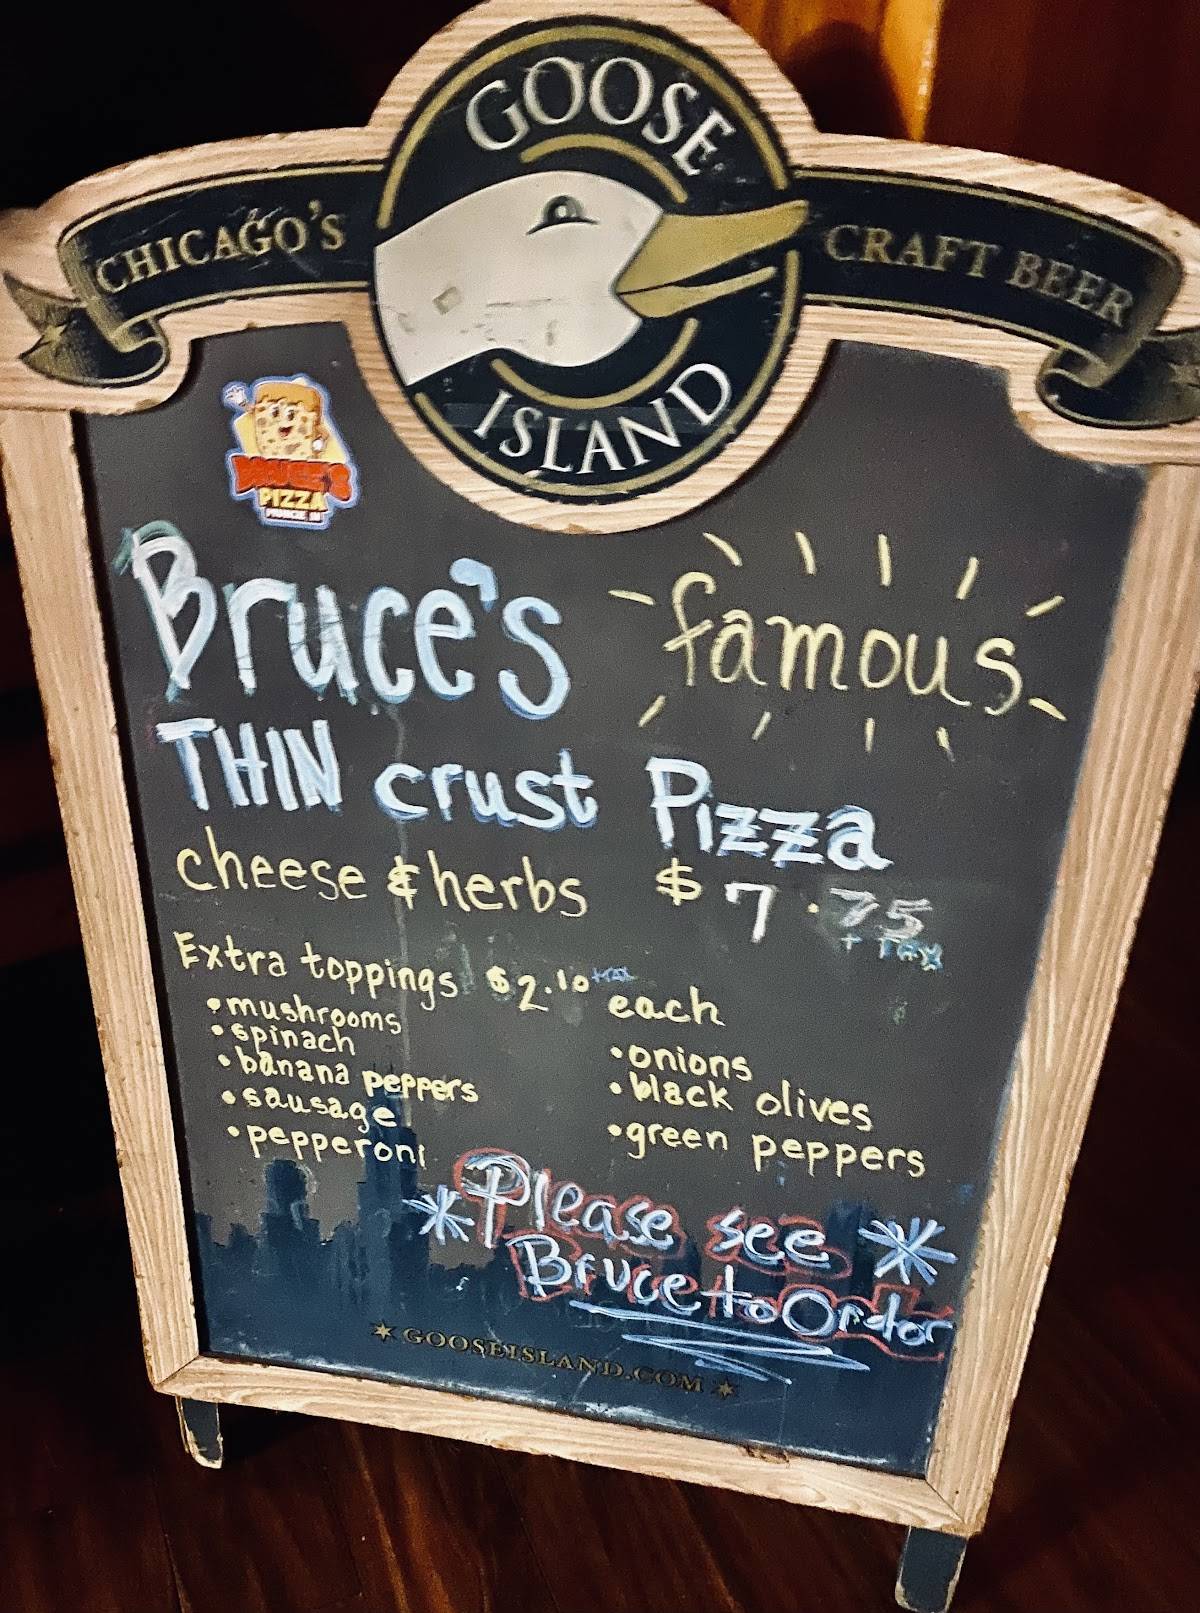 GOOSE
CHICAGO'S
CRAFT BEER
ISLAND
PIZZA
Bruce's famous
THIN crust Pizza
cheese & herbs $7.75
+ TAX
Extra toppings $2.10 each
•mushrooms
•spinach
•banana peppers
•sausage
•pepperoni
•onions
•black olives
•green peppers
*Please see*
Bruce to Order
GOOSEISLAND.COM